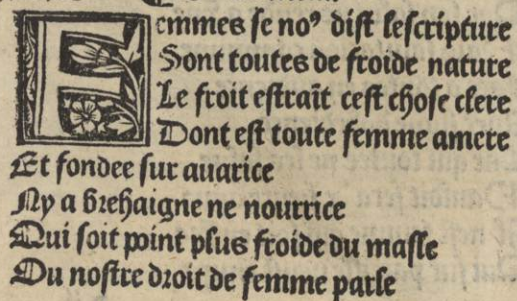 Femmes se noꝰ dist lescripture
Sont toutes de froide nature
Le froit estrait cest chose clere
Dont est toute femme amere
Et fondee sur auarice
Ny a brehaigne ne nourrice
Qui soit point plus froide du masle
Ou nostre droit de femme parle